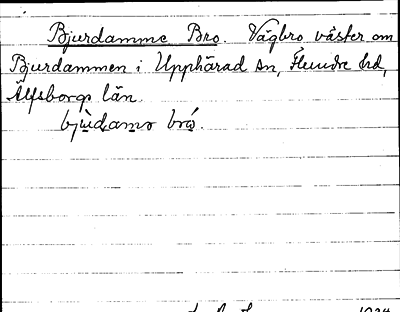 Bjurdamme Bro. Vägbro väster om
Bjurdammen i Upphärad sn, Flundre hd,
Älfsborgs län.
bju̇damə brȯ.